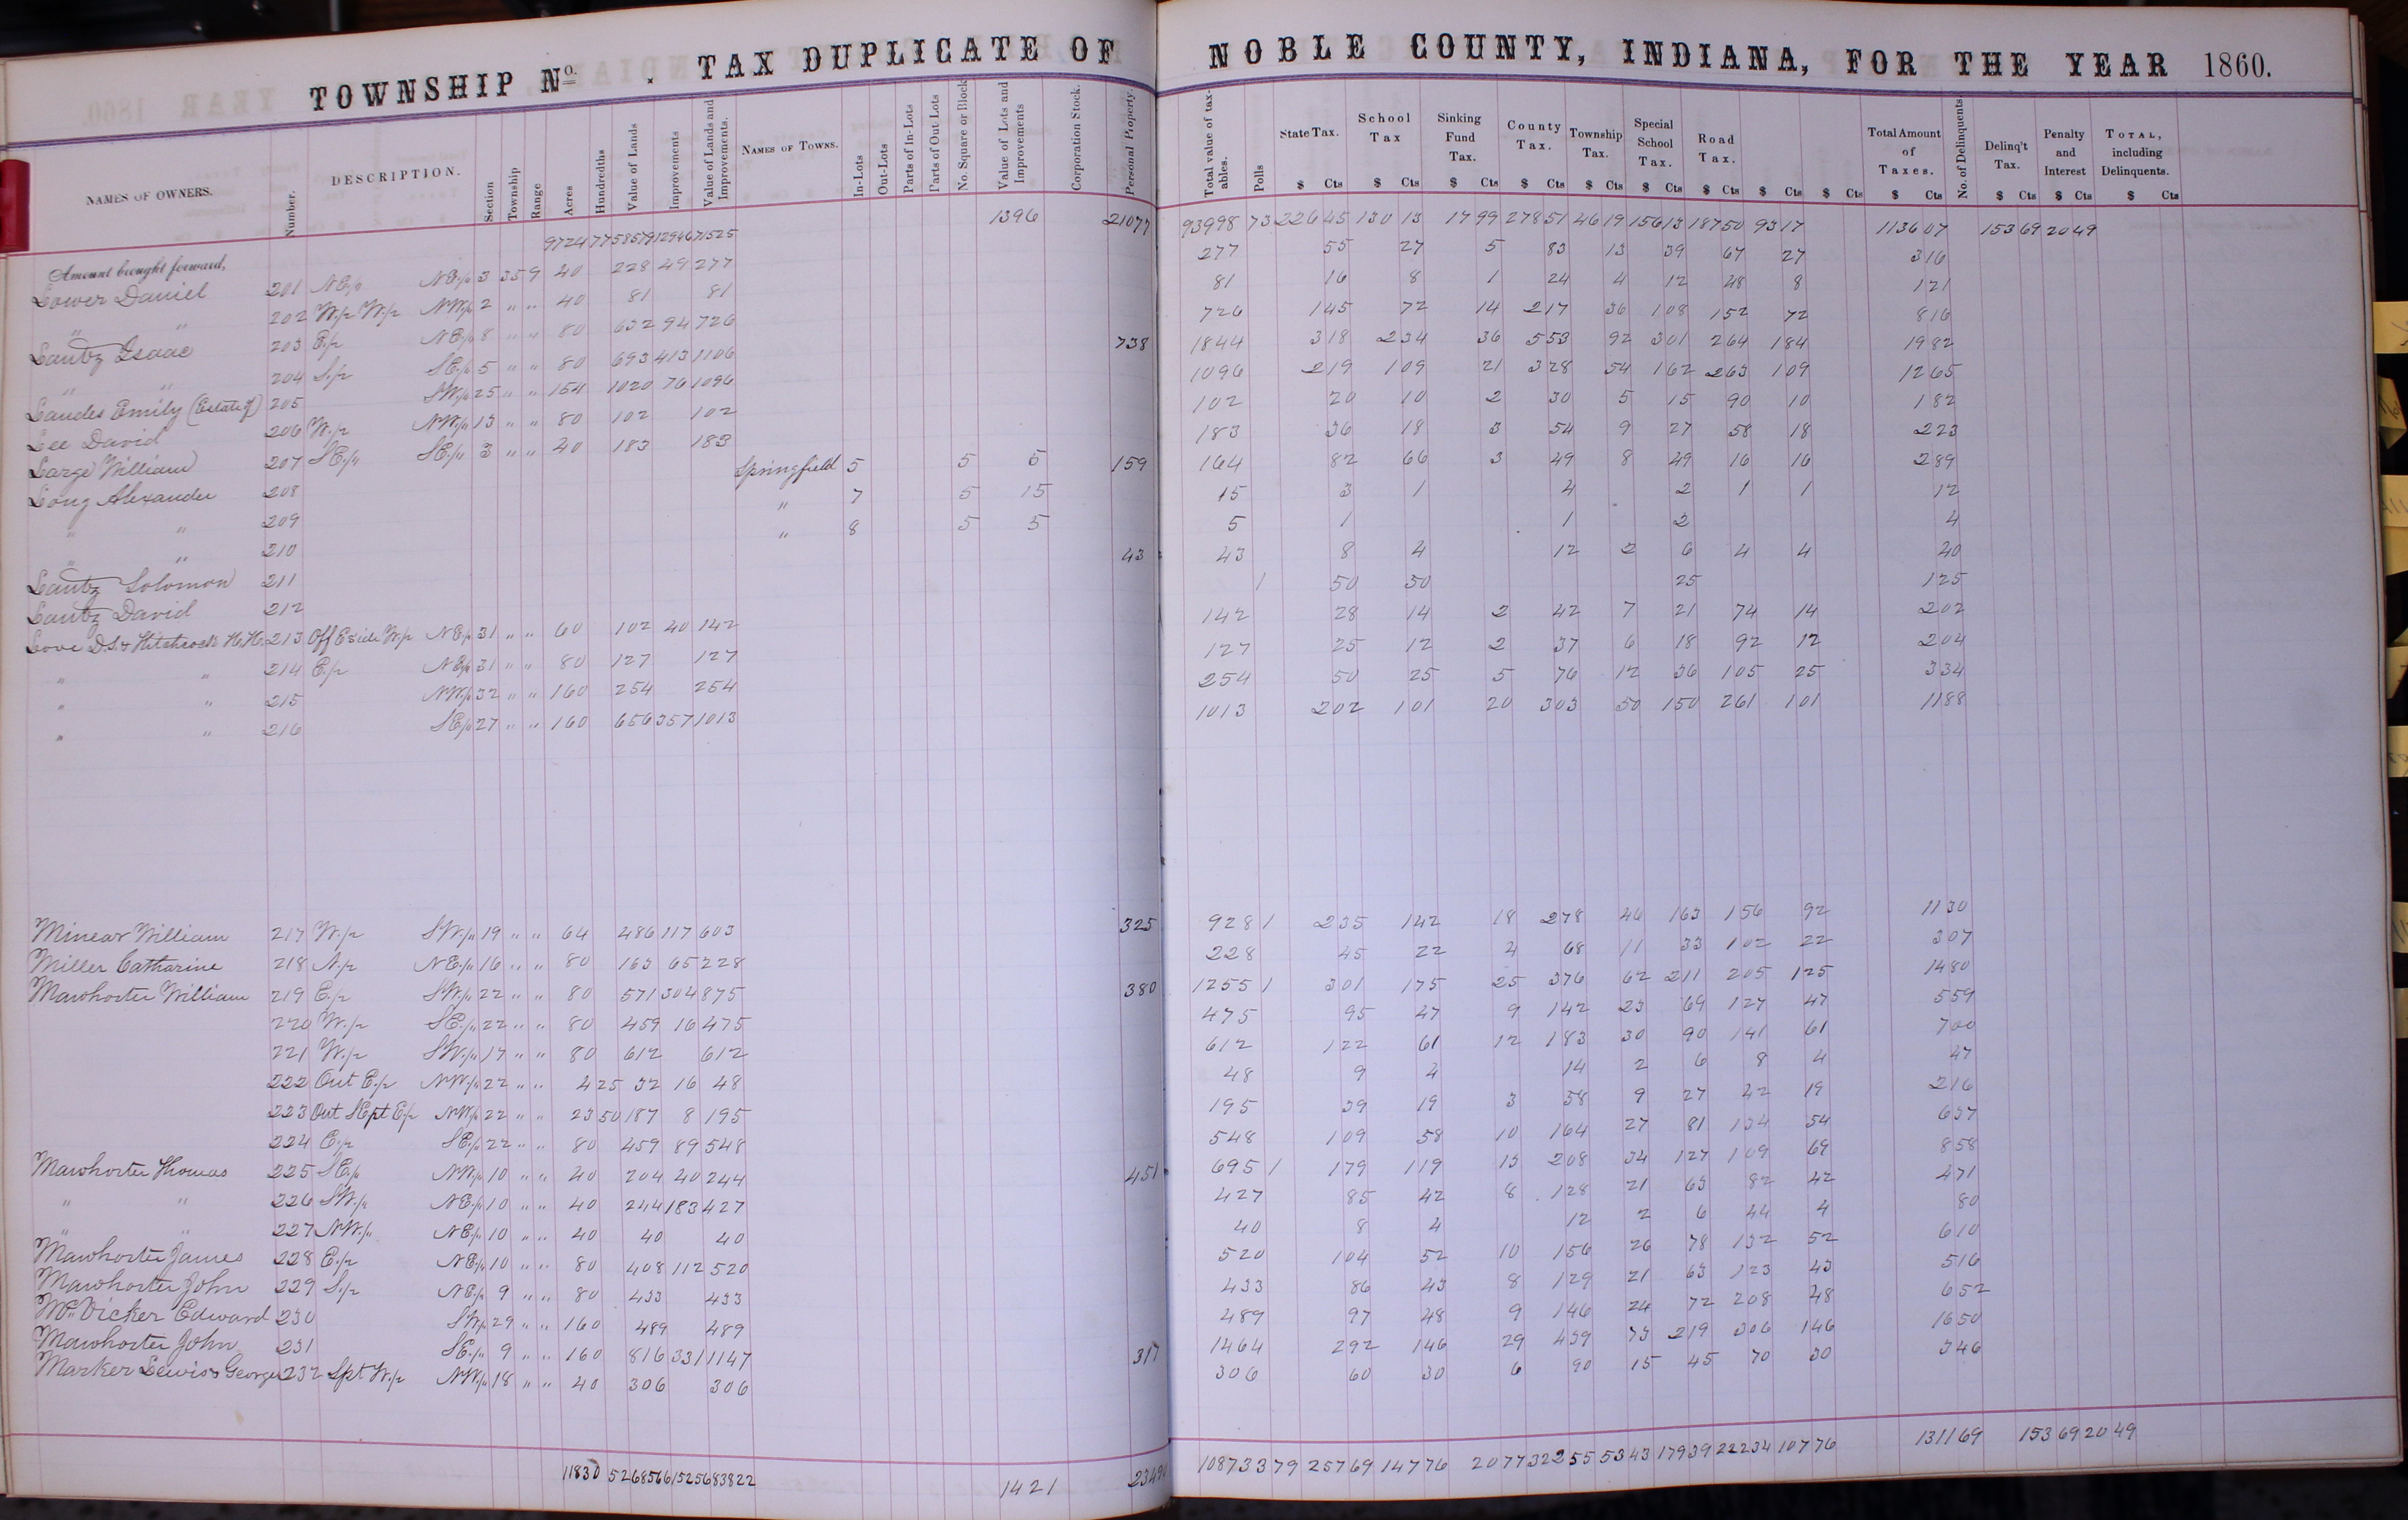 TOWNSHIP No. . TAX DUPLICATE OF NOBLE COUNTY, INDIANA, FOR THE YEAR 1860.
NAMES OF OWNERS. Number. DESCRIPTION. Section Township Range Acres Hundredths Value of Lands Improvements Value of Lands and Improvements. NAMES OF TOWNS. In-Lots Out-Lots Parts of In-Lots Parts of Out Lots No. Square or Block Value of Lots and Improvements Corporation Stock. Personal Property. Total value of taxables. Polls State Tax. School Tax Sinking Fund Tax. County Tax. Township Tax. Special School Tax. Road Tax. Total Amount of Taxes. No. of Delinquents Delinq't Tax. Penalty and Interest TOTAL, including Delinquents.
$ Cts $ Cts $ Cts $ Cts $ Cts $ Cts $ Cts $ Cts $ Cts $ Cts $ Cts $ Cts $ Cts
Amount brought forward, 9724 77 58579 12946 71525 1396 21077 93998 73 226 45 130 13 17 99 278 51 46 19 156 13 187 50 93 17 1136 07 153 69 20 49
Lower Daniel 201 NE/4 NE/4 3 35 9 40 228 49 277 277 55 27 5 83 13 39 67 27 316
" " 202 W/2 W/2 NW/4 2 " " 40 81 81 81 16 8 1 24 4 12 48 8 121
Lantz Isaac 203 E/2 NE/4 8 " " 80 632 94 726 726 145 72 14 217 36 108 152 72 816
" " 204 S/2 SE/4 5 " " 80 693 413 1106 738 1844 318 234 36 553 92 301 264 184 1982
Landes Emily (Estate of) 205 SW/4 25 " " 154 1020 76 1096 1096 219 109 21 328 54 162 263 109 1265
Lee David 206 W/2 NW/4 13 " " 80 102 102 102 20 10 2 30 5 15 90 10 182
Large William 207 SE/4 SE/4 3 " " 40 183 183 183 36 18 3 54 9 27 58 18 223
Long Alexander 208 Springfield 5 5 5 159 164 82 66 3 49 8 49 16 16 289
" " 209 " 7 5 15 15 3 1 4 2 1 1 12
" " 210 " 8 5 5 5 1 1 2 4
Lantz Solomon 211 43 43 8 4 12 2 6 4 4 40
Lantz David 212 1 50 50 25 125
Love D.S. & Hitchcock H.H. 213 Off E side W/2 NE/4 31 " " 60 102 40 142 142 28 14 2 42 7 21 74 14 202
" " 214 E/2 NE/4 31 " " 80 127 127 127 25 12 2 37 6 18 92 12 204
" " 215 NW/4 32 " " 160 254 254 254 50 25 5 76 12 36 105 25 334
" " 216 SE/4 27 " " 160 656 357 1013 1013 202 101 20 303 50 150 261 101 1188
Minear William 217 W/2 SW/4 19 " " 64 486 117 603 325 928 1 235 142 18 278 46 163 156 92 1130
Miller Catharine 218 N/2 NE/4 16 " " 80 163 65 228 228 45 22 4 68 11 33 102 22 307
Mawhorter William 219 E/2 SW/4 22 " " 80 571 304 875 380 1255 1 301 175 25 376 62 211 205 125 1480
220 W/2 SE/4 22 " " 80 459 16 475 475 95 47 9 142 23 69 127 47 559
221 W/2 SW/4 17 " " 80 612 612 612 122 61 12 183 30 90 141 61 700
222 Out E/2 NW/4 22 " " 4 25 32 16 48 48 9 4 14 2 6 8 4 47
223 Out SE pt E/2 NW/4 22 " " 23 50 187 8 195 195 39 19 3 58 9 27 42 19 216
224 E/2 SE/4 22 " " 80 459 89 548 548 109 58 10 164 27 81 134 54 637
Mawhorter Thomas 225 SE/4 NW/4 10 " " 40 204 40 244 451 695 1 179 119 13 208 34 127 109 69 858
" " 226 SW/4 NE/4 10 " " 40 244 183 427 427 85 42 8 128 21 63 82 42 471
" " 227 NW/4 NE/4 10 " " 40 40 40 40 8 4 12 2 6 44 4 80
Mawhorter James 228 E/2 NE/4 10 " " 80 408 112 520 520 104 52 10 156 26 78 132 52 610
Mawhorter John 229 S/2 NE/4 9 " " 80 433 433 433 86 43 8 129 21 63 123 43 516
McVicker Edward 230 SW/4 29 " " 160 489 489 489 97 48 9 146 24 72 208 48 652
Mawhorter John 231 SE/4 9 " " 160 816 331 1147 317 1464 292 146 29 439 73 219 306 146 1650
Marker Lewis & George 232 S pt W/2 NW/4 18 " " 40 306 306 306 60 30 6 90 15 45 70 30 346
11830 52 68566 15256 83822 1421 23490 108733 79 257 69 147 76 20 77 322 55 53 43 179 39 222 34 107 76 1311 69 153 69 20 49